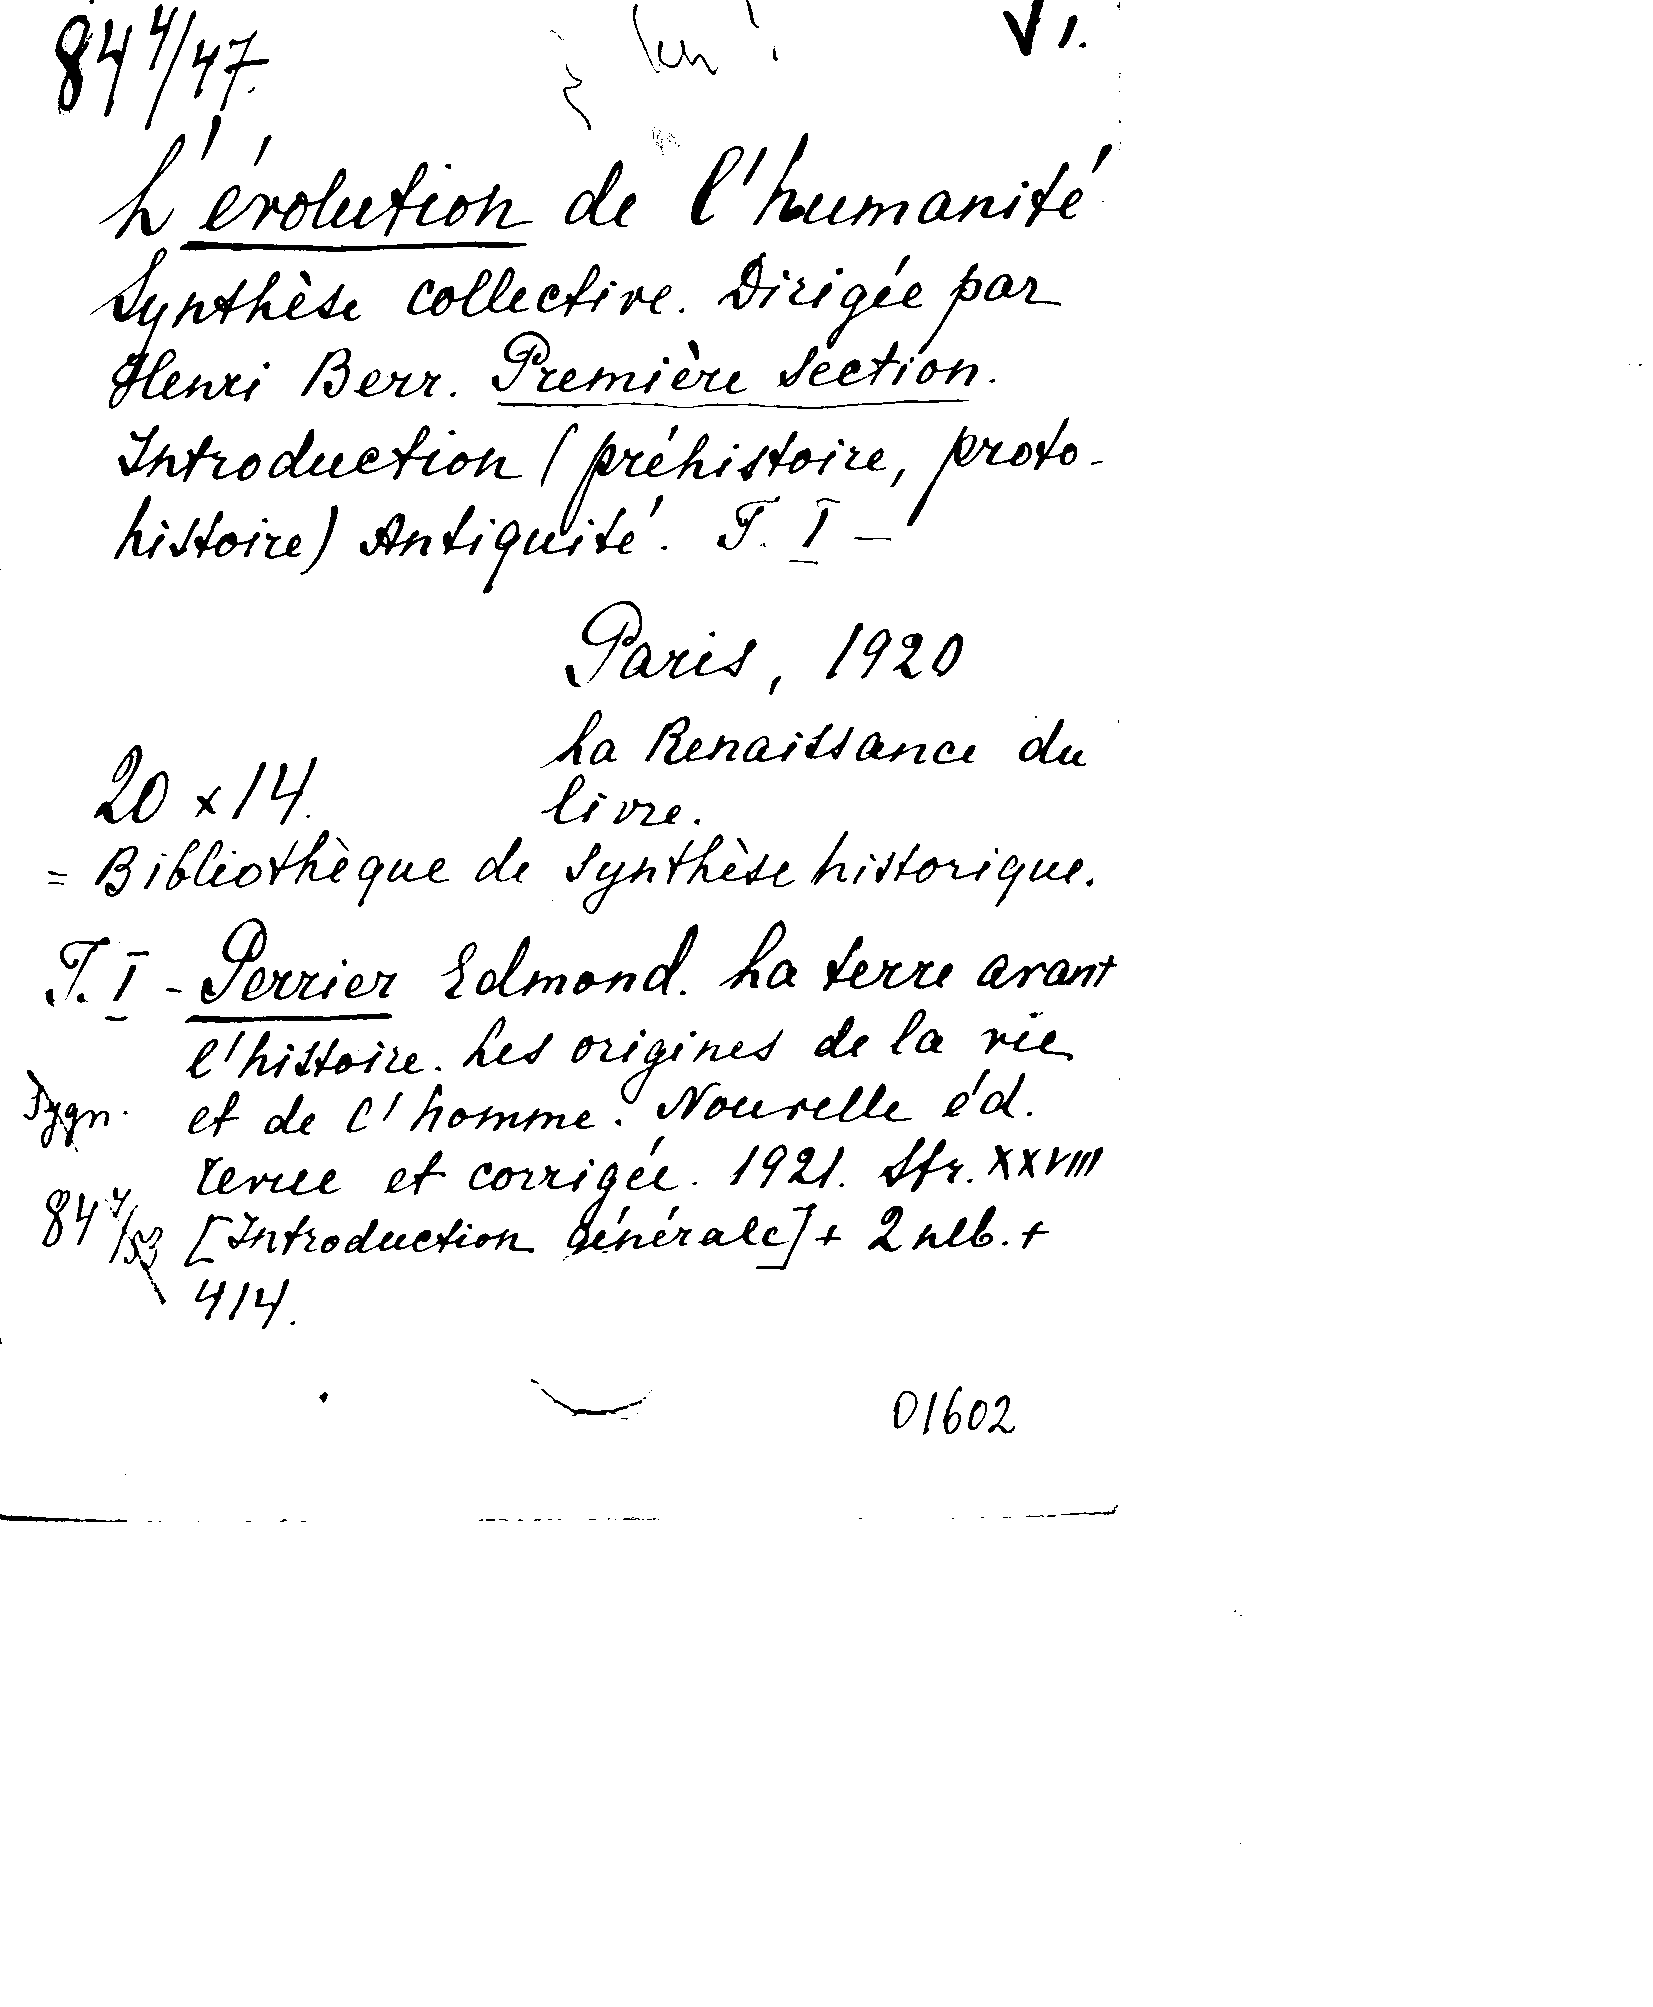 84 4/47. V 1.
L'évolution de l'humanité
Synthèse collective. Dirigée par
Henri Berr. Première section.
Introduction (préhistoire, proto-
histoire) Antiquité. T. I –
Paris, 1920
La Renaissance du
livre.
20 x 14.
= Bibliothèque de synthèse historique.
T. I - Perrier Edmond. La terre avant
l'histoire. Les origines de la vie
et de l'homme. Nouvelle éd.
revue et corrigée. 1921. Str. XXVIII
[Introduction générale] + 2 nlb. +
414.
Sygn.
84 4/53
01602